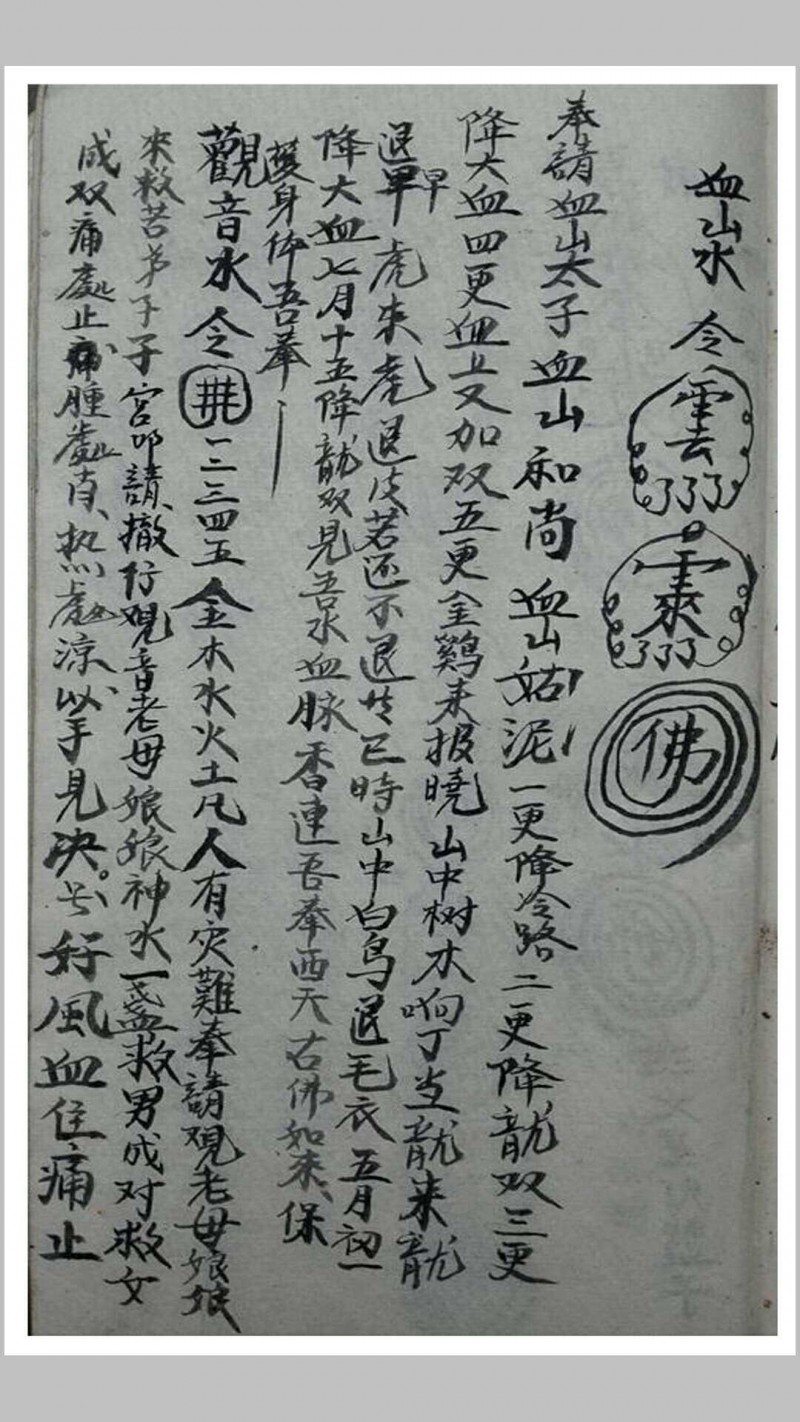 血山水 令 雲 了了了 靈 了了了 佛
奉請血山太子血山和尚血山姑泥一更降冷路二更降龍双三更
降大血四更血上又加双五更金鷄来报曉山中树木响丁当龍来龍
退早虎来虎退皮若还不退 巳時山中白鸟退毛衣五月初一
降大血七月十五降龍双見吾水血脉香連吾奉西天古佛如来保
護身体吾奉
觀音水令 井 一二三四五金木水火土凡人有灾難奉請观老母娘娘
来救苦弟子子宫叩請撤行观音老母娘娘神水一盏救男成对救女
成双痛處止痛腫處消热處凉以手見决 好風血住痛止